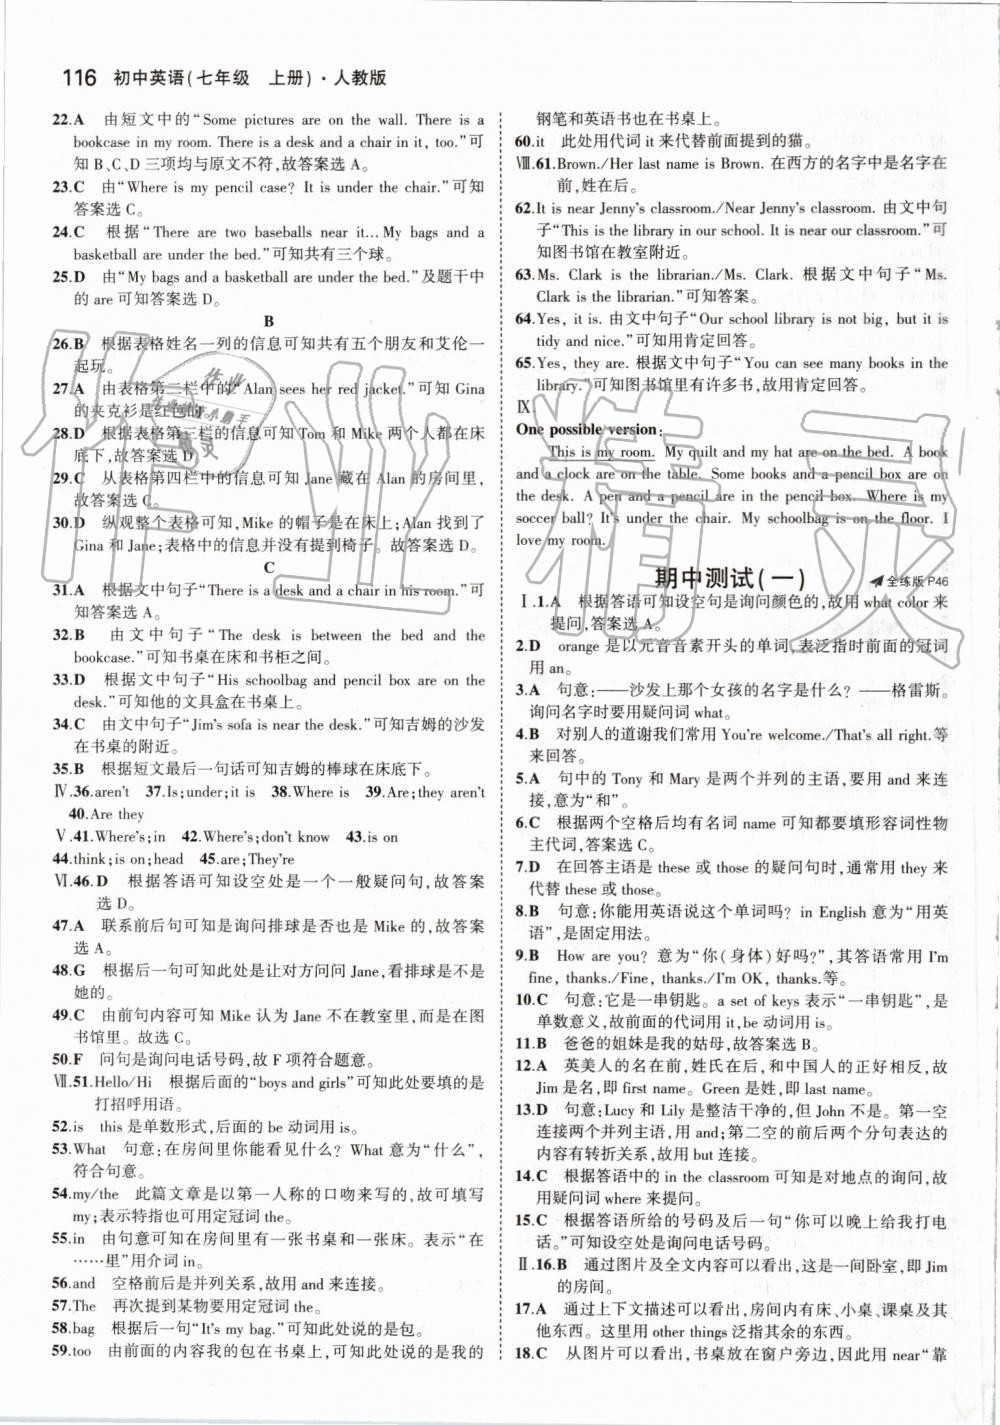 116 初中英语(七年级 上册)·人教版
22.A 由短文中的“Some pictures are on the wall. There is a
bookcase in my room. There is a desk and a chair in it, too.”可
知B、C、D三项均与原文不符,故答案选A。
23.C 由“Where is my pencil case? It is under the chair.”可知
答案选C。
24.C 根据“There are two baseballs near it… My bags and a
basketball are under the bed.”可知共有三个球。
25.D 由“My bags and a basketball are under the bed.”及题干中
的are可知答案选D。
B
26.B 根据表格姓名一列的信息可知共有五个朋友和艾伦一
起玩。
27.A 由表格第二栏中的“Alan sees her red jacket.”可知Gina
的夹克衫是红色的。
28.D 根据表格第三栏的信息可知Tom和Mike两个人都在床
底下,故答案选D。
29.C 从表格第四栏中的信息可知Jane藏在Alan的房间里,
故答案选C。
30.D 纵观整个表格可知,Mike的帽子是在床上;Alan找到了
Gina和Jane;表格中的信息并没有提到椅子。故答案选D。
C
31.A 根据文中句子“There is a desk and a chair in his room.”可
知答案选A。
32.B 由文中句子“The desk is between the bed and the
bookcase.”可知书桌在床和书柜之间。
33.D 根据文中句子“His schoolbag and pencil box are on the
desk.”可知他的文具盒在书桌上。
34.C 由文中句子“Jim's sofa is near the desk.”可知吉姆的沙发
在书桌的附近。
35.B 根据短文最后一句话可知吉姆的棒球在床底下。
Ⅳ.36.aren't 37.Is;under;it is 38.Where is 39.Are;they aren't
40.Are they
Ⅴ.41.Where's;in 42.Where's;don't know 43.is on
44.think;is on;head 45.are;They're
Ⅵ.46.D 根据答语可知设空处是一个一般疑问句,故答案
选D。
47.A 联系前后句可知是询问排球是否也是Mike的,故答案
选A。
48.G 根据后一句可知此处是让对方问问Jane,看排球是不是
她的。
49.C 由前句内容可知Mike认为Jane不在教室里,而是在图
书馆里。故选C。
50.F 问句是询问电话号码,故F项符合题意。
Ⅶ.51.Hello/Hi 根据后面的“boys and girls”可知此处要填的是
打招呼用语。
52.is this是单数形式,后面的be动词用is。
53.What 句意:在房间里你能看见什么? What意为“什么”,
符合句意。
54.my/the 此篇文章是以第一人称的口吻来写的,故可填写
my;表示特指也可用定冠词the。
55.in 由句意可知在房间里有一张书桌和一张床。表示“在
……里”用介词in。
56.and 空格前后是并列关系,故用and来连接。
57.The 再次提到某物要用定冠词the。
58.bag 根据后一句“It's my bag.”可知此处说的是包。
59.too 由前面的内容我的包在书桌上,可知此处说的是我的
钢笔和英语书也在书桌上。
60.it 此处用代词it来代替前面提到的猫。
Ⅷ.61.Brown./Her last name is Brown. 在西方的名字中是名字在
前,姓在后。
62.It is near Jenny's classroom./Near Jenny's classroom. 由文中句
子“This is the library in our school. It is near our classroom.”可
知图书馆在教室附近。
63.Ms. Clark is the librarian./Ms. Clark. 根据文中句子“Ms.
Clark is the librarian.”可知答案。
64.Yes, it is. 由文中句子“Our school library is not big, but it is
tidy and nice.”可知用肯定回答。
65.Yes, they are. 根据文中句子“You can see many books in the
library.”可知图书馆里有许多书,故用肯定回答。
Ⅸ.
One possible version:
This is my room. My quilt and my hat are on the bed. A book
and a clock are on the table. Some books and a pencil box are on
the desk. A pen and a pencil are in the pencil box. Where is my
soccer ball? It's under the chair. My schoolbag is on the floor. I
love my room.
期中测试(一) 全练版P46
Ⅰ.1.A 根据答语可知设空句是询问颜色的,故用what color来
提问,答案选A。
2.D orange是以元音音素开头的单词,表泛指时前面的冠词
用an。
3.A 句意:——沙发上那个女孩的名字是什么? ——格雷斯。
询问名字时要用疑问词what。
4.B 对别人的道谢我们常用You're welcome./That's all right.等
来回答。
5.A 句中的Tony和Mary是两个并列的主语,要用and来连
接,意为“和”。
6.C 根据两个空格后均有名词name可知都要填形容词性物
主代词,答案选C。
7.D 在回答主语是these或those的疑问句时,通常用they来
代替these或those。
8.B 句意:你能用英语说这个单词吗? in English意为“用英
语”,是固定用法。
9.B How are you? 意为“你(身体)好吗?”,其答语常用I'm
fine, thanks./Fine, thanks./I'm OK, thanks.等。
10.C 句意:它是一串钥匙。a set of keys表示“一串钥匙”,是
单数意义,故前面的代词用it,be动词用is。
11.B 爸爸的姐妹是我的姑母,故答案选B。
12.A 英美人的名在前,姓氏在后,和中国人的正好相反,故
Jim是名,即first name。Green是姓,即last name。
13.D 句意:Lucy和Lily是整洁干净的,但John不是。第一空
连接两个并列主语,用and;第二空的前后两个分句表达的
内容有转折关系,故用but连接。
14.C 根据答语中的in the classroom可知是对地点的询问,故
用疑问词where来提问。
15.C 根据答语所给的号码及后一句“你可以晚上给我打电
话。”可知设空处是询问电话号码。
Ⅱ.16.B 通过图片及全文内容可以看出,这是一间卧室,即Jim
的房间。
17.A 通过上下文描述可以看出,房间内有床、小桌、课桌及其
他东西。这里用other things泛指其余的东西。
18.C 从图片可以看出,书桌放在窗户旁边,因此用near“靠
作业精灵